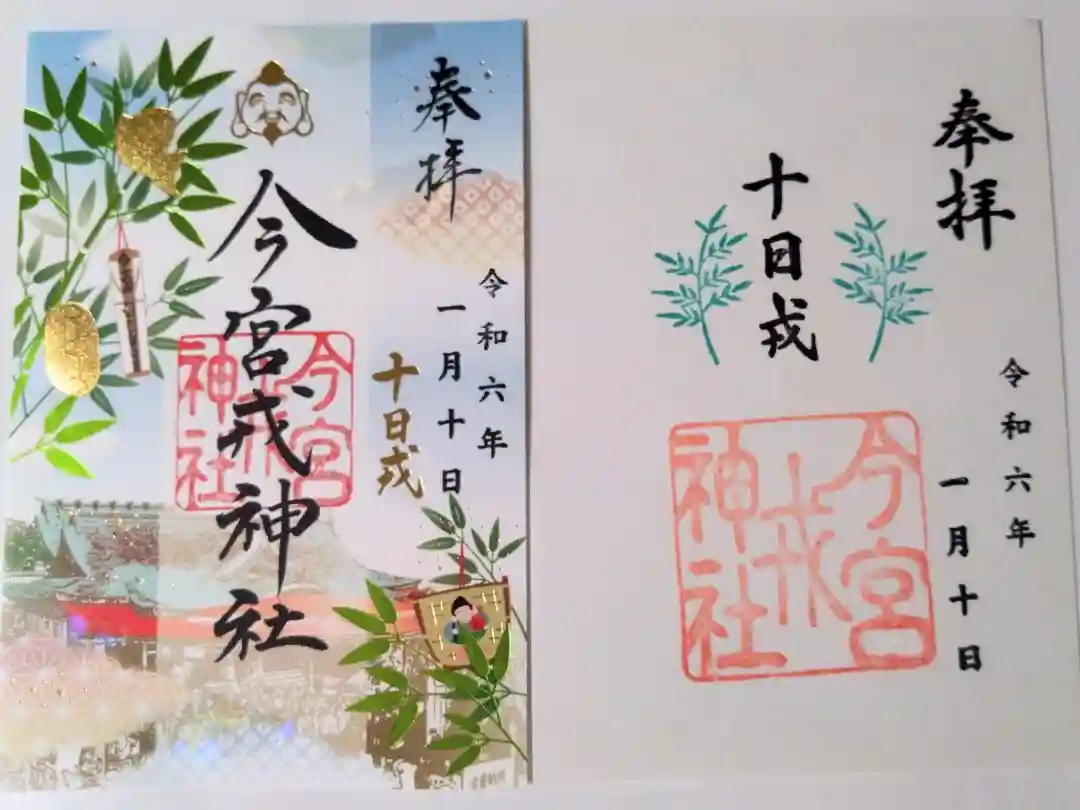 奉拝
令和六年
一月十日
十日戎
今宮戎神社
今宮
戎
神社
奉拝
十日戎
令和六年
一月十日
今宮
戎
神社